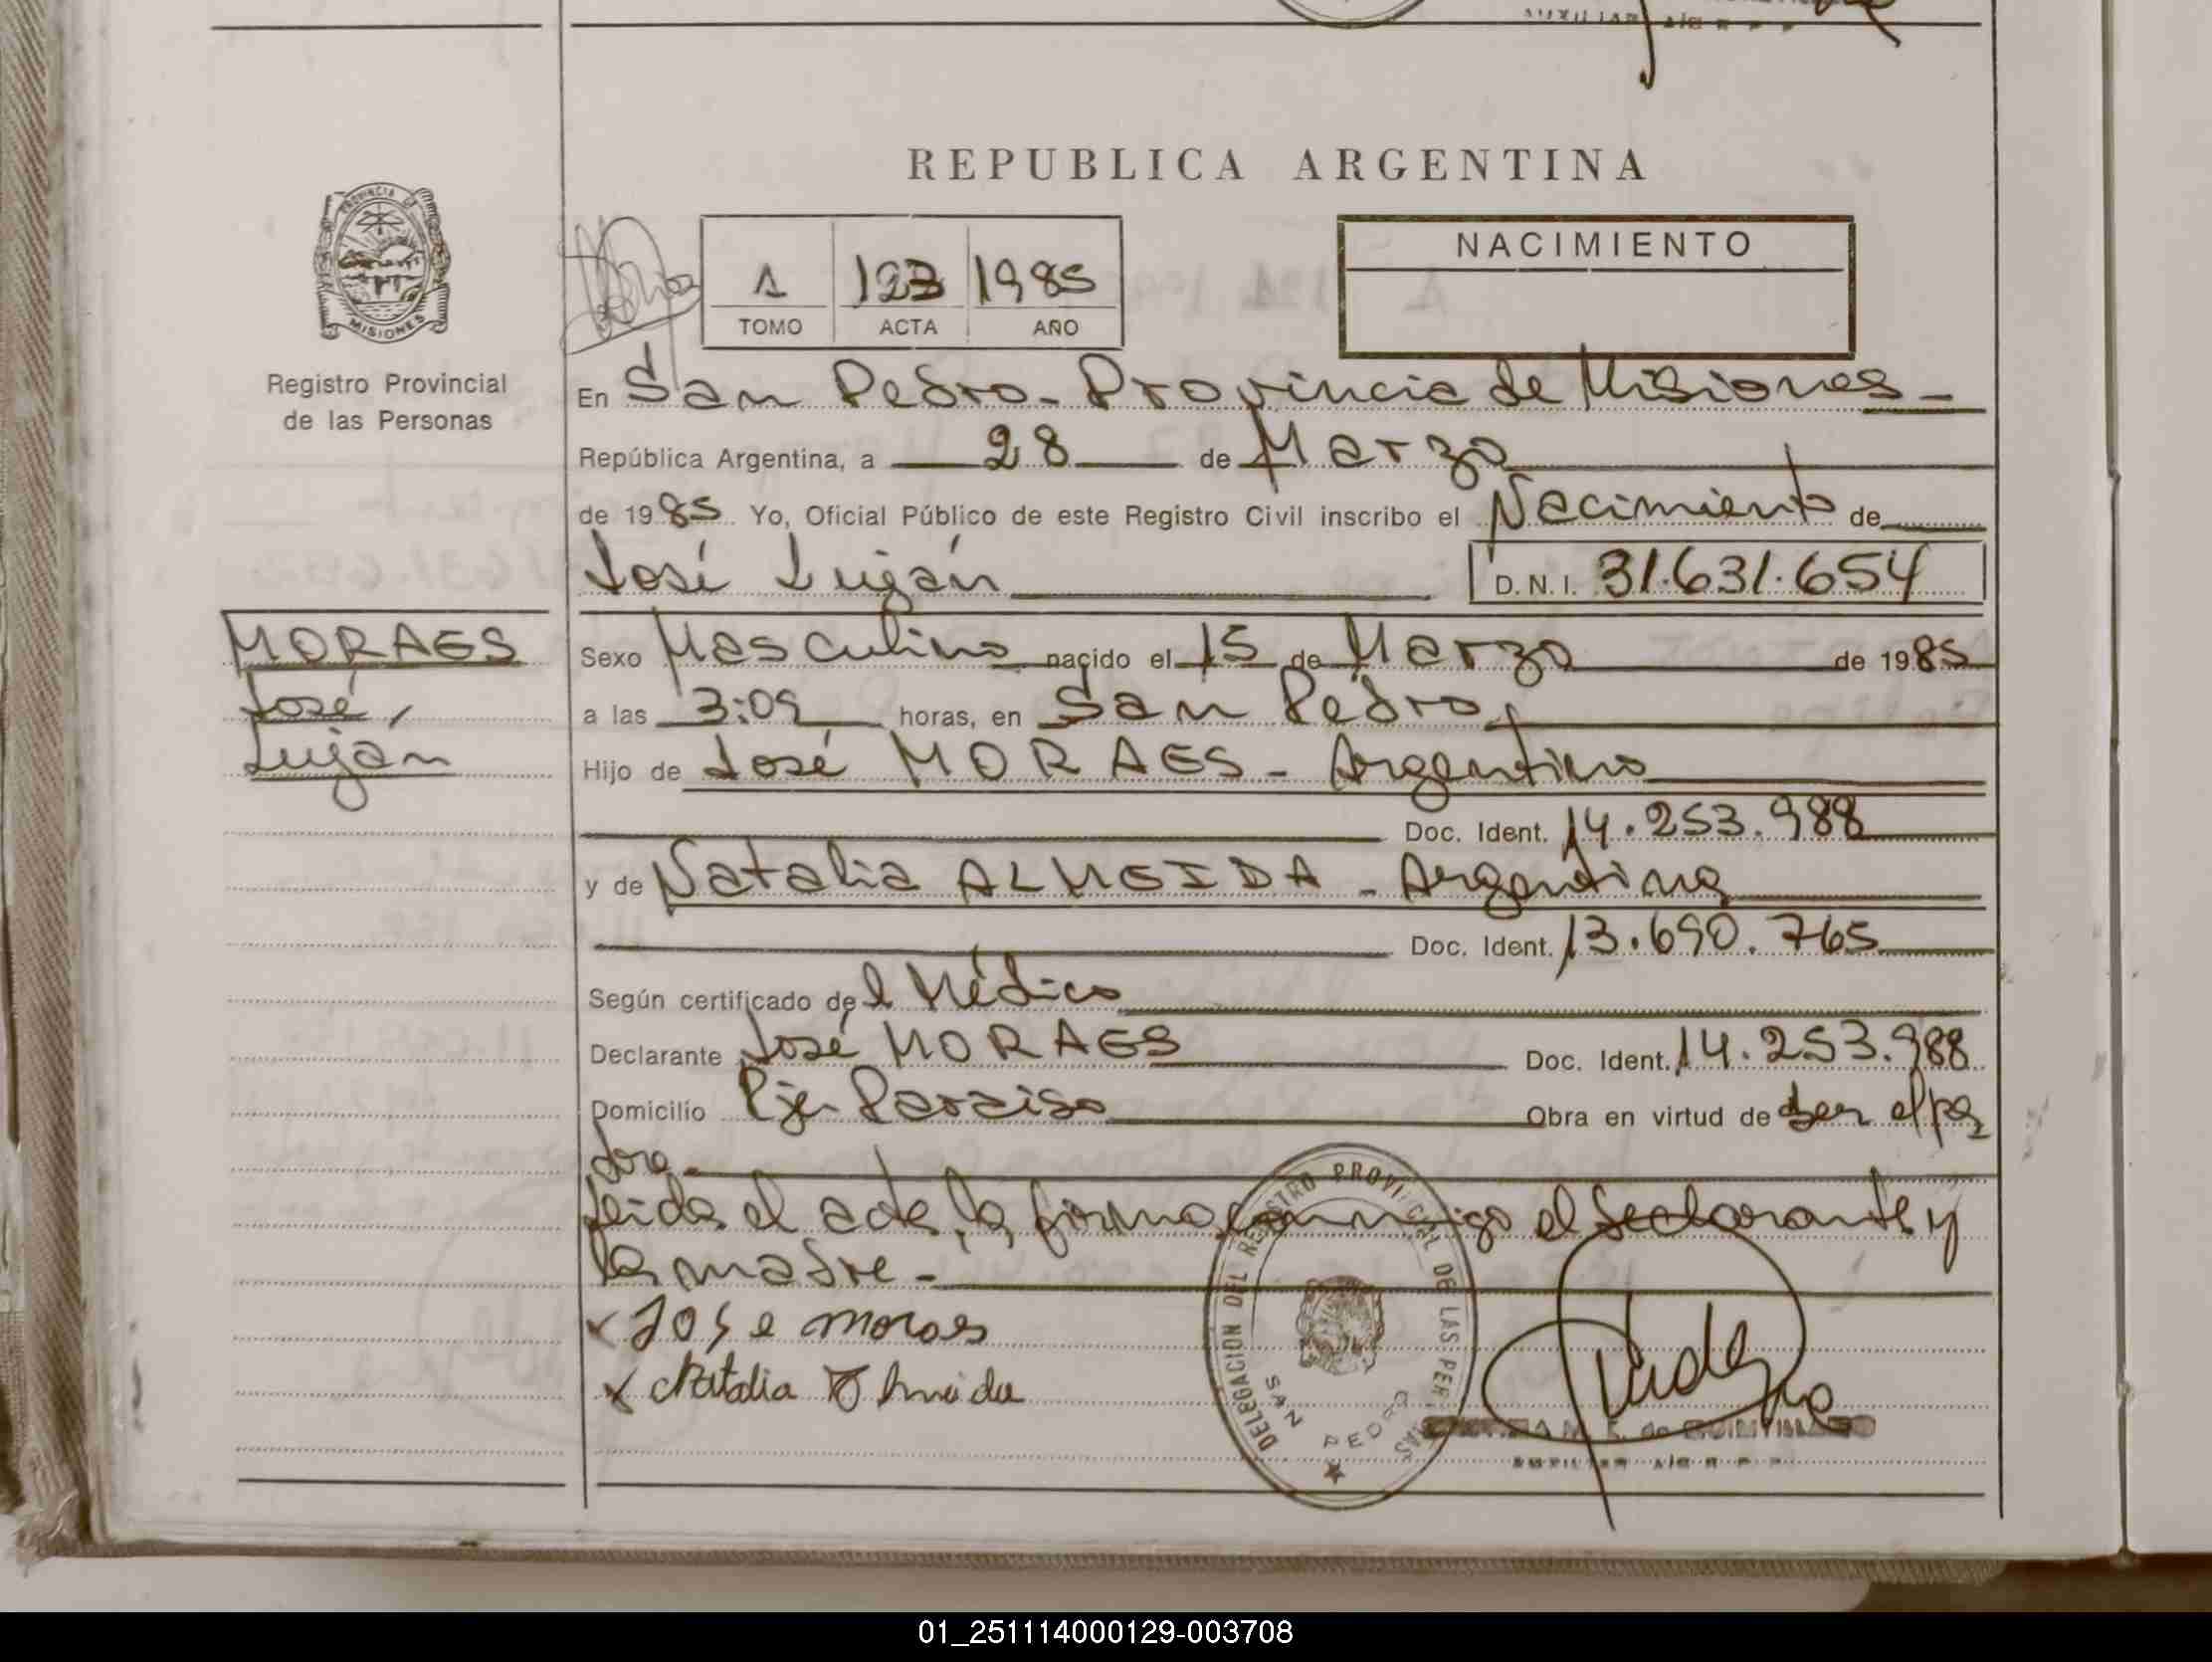 REPUBLICA ARGENTINA
PROVINCIA DE
MISIONES
Registro Provincial
de las Personas
1 123 1985
TOMO ACTA AÑO
NACIMIENTO
En San Pedro - Provincia de Misiones -
República Argentina, a 28 de Marzo
de 1985 Yo, Oficial Público de este Registro Civil inscribo el Nacimiento de
José Luján D.N.I. 31.631.654
MORAES
José,
Luján
Sexo Masculino nacido el 15 de Marzo de 1985
a las 3:09 horas, en San Pedro,
Hijo de José MORAES - Argentino
Doc. Ident. 14.253.988
y de Natalia ALMEIDA - Argentina
Doc. Ident. 13.690.765
Según certificado del Médico
Declarante José MORAES Doc. Ident. 14.253.988
Domicilio Pje. Paraiso Obra en virtud de ser el pa
dre.-
leida el acta, la firma conmigo el declarante y
la madre.-
x Jose moraes
x Natalia Almeida
DELEGACION DEL REGISTRO PROVINCIAL DE LAS PERSONAS
SAN PEDRO
M. de QUINTILIANO
01_251114000129-003708